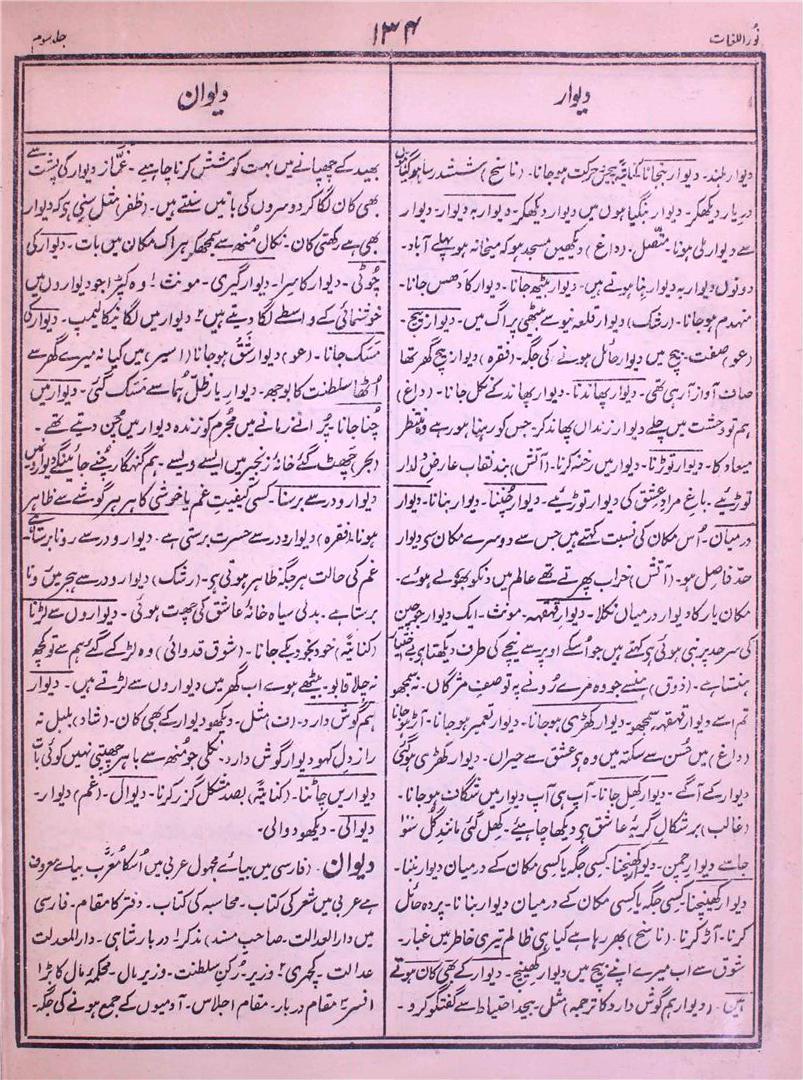 نُور اللغات
۱۳۴
جلد سوم
دیوار
دیوان
دیوار بلند۔ دیوار بنجانا۔ کنایۃً بیحس حرکت ہو جانا۔ (ناسخ) ششدر رسا ہو گیا میں
دریار دیکھکر۔ دیوار بنگیا ہوں میں دیوار دیکھکر۔ دیوار بہ دیوار۔ دیوار
سے دیوار ملی ہونا۔ متّصل۔ (داغ) دیکھیں مسجد ہو کہ میخانہ ہو پہلے آباد۔
دونوں دیوار بہ دیوار بنا ہوتے ہیں۔ دیوار بیٹھ جانا۔ دیوار کا دھس جانا۔
منہدم ہو جانا۔ (رشک) دیوار قلعہ نیو سے بیٹھی پراگ میں۔ دیوار بیچ۔
(عو) صفت۔ بیچ میں دیوار حائل ہونے کی جگہ۔ (فقرہ) دیوار بیچ گھر تھا
صاف آواز آرہی تھی۔ دیوار پھاندنا۔ دیوار پھاند کے نکل جانا۔ (داغ)
ہم تو وحشت میں چلے دیوار زنداں پھاند کر۔ جس کو رہنا ہو رہے وہ منتظر
میعاد کا۔ دیوار توڑنا۔ دیوار میں رخنہ کرنا۔ (آتش) بند نقاب عارض دلدار
توڑیئے۔ باغ مراد عشق کی دیوار توڑیئے۔ دیوار چُننا۔ دیوار بنانا۔ دیوار
درمیان۔ اُس مکان کی نسبت کہتے ہیں جس سے دوسرے مکان سی دیوار
حدّ فاصل ہو۔ (آتش) خراب پھرتے تھے عالم میں دنکو بھولے ہوے۔
مکان یار کا دیوار درمیاں نکلا۔ دیوار قہقہہ۔ مونث۔ ایک دیوار جو چین
کی سرحد پر بنی ہوئی ہے کہتے ہیں جو اُسکے اوپر سے نیچے کی طرف دیکھتا ہے بے اختیار
ہنستا ہے۔ (ذوق) ہنسے جو وہ مرے رونے پہ تو صف مژگاں۔ نہ سمجھو
تم اسے دیوار قہقہہ سمجھو۔ دیوار کھڑی ہو جانا۔ دیوار تعمیر ہو جانا۔ آڑ ہو جانا
(داغ) میں حُسن سے سکتہ میں وہ ہی عشق سے حیراں۔ دیوار کھڑی ہو گئی
دیوار کے آگے۔ دیوار کھل جانا۔ آپ ہی آپ دیوار میں شگاف ہو جانا۔
(غالب) برشکال گریۂ عاشق ہی دیکھا چاہیئے۔ کھل گئی مانند گُل سَو
جا سے دیوار چمن۔ دیوار کھنچنا۔ کسی جگہ یا کسی مکان کے درمیان دیوار بننا۔
دیوار کھینچنا۔ کسی جگہ یا کسی مکان کے درمیان دیوار بنانا۔ پردہ حائل
کرنا۔ آڑ کرنا۔ (ناسخ) بھر رہا ہے کیا ہی ظالم تیری خاطر میں غبار۔
شوق سے اب میرے اپنے بیچ میں دیوار کھینچ۔ دیوار کے بھی کان ہوتے
ہیں۔ (دیوار ہم گوش دارد کا ترجمہ) مثل۔ بیحد احتیاط سے گفتگو کرو۔
بھید کے چھپانے میں بہت کوشش کرنا چاہیے۔ غمّاز دیوار کی پشت سے
بھی کان لگا کر دوسروں کی باتیں سنتے ہیں۔ (ظفر) مثل سنی ہے کہ دیوار
بھی ہے رکھتی کان۔ نکال مُنھ سے سمجھکر ہراک مکان میں بات۔ دیوار کی
چوٹی۔ دیوار کا سرا۔ دیوار گیری۔ مونث۔ ۱ وہ کپڑا جو دیواروں میں
خوشنمائی کے واسطے لگا دیتے ہیں ۲ دیوار میں لگانیکا لیمپ۔ دیوار کی
مَسک جانا۔ (عو) دیوار شَق ہو جانا (اسیر) میں کیا نہ میرے گھر سے
اُٹھا سلطنت کا بوجھ۔ دیوار یار ظلّ ہما سے مَسک گئی۔ دیوار میں
چُنا جانا۔ پُرانے زمانے میں مُجرم کو زندہ دیوار میں چُن دیتے تھے۔
(بحر) چھٹ گئے خانۂ زنجیر میں ایسے ویسے۔ ہم گنہگار چُنے جائینگے دیواروں میں
دیوار و در سے برسنا۔ کسی کیفیت غم یا خوشی کا ہر ہر گوشے سے ظاہر
ہونا۔ (فقرہ) دیوار و در سے حسرت برستی ہے۔ دیوار و در سے رونا برسنا
غم کی حالت ہر جگہ ظاہر ہوتی ہی۔ (رشک) دیوار و در سے ہجر میں رونا
برستا ہے۔ بدلی سیاہ خانۂ عاشق کی چھت ہوئی۔ دیواروں سے لڑنا
(کنایۃً) خود بخود بکے جانا۔ (شوق قدوائی) وہ لڑ کے گئے ہم سے تو کچھ
نہ چلا قابو۔ بیٹھے ہوے اب گھر میں دیواروں سے لڑتے ہیں۔ دیوار
ہم گوش دارد۔ (ف) مثل۔ دیکھو دیوار کے بھی کان۔ (شاد) بلبل نہ
راز دل کہو دیوار گوش دارد۔ نکلی جو مُنھ سے باہر چھپتی نہیں کوئی بات
دیواریں چاٹنا۔ (کنایۃً) بصد مشکل گزر کرنا۔ دیوال۔ (عم) دیوار۔
دیوالی۔ دیکھو دوالی۔
دیوان۔ (فارسی میں بیائے مجہول عربی میں اسکا مُعرَّب بیائے معروف
ہے عربی میں شعر کی کتاب۔ محاسبہ کی کتاب۔ دفتر کا مقام۔ فارسی
میں دار العدالت۔ صاحب مسند) مذکر۔ ۱ دربار شاہی۔ دار العدالت
عدالت۔ کچہری ۲ وزیر۔ رُکن سلطنت۔ وزیر مال۔ محکمۂ مال کا بڑا
افسر ۳ مقام دربار۔ مقام اجلاس۔ آدمیوں کے جمع ہونے کی جگہ۔